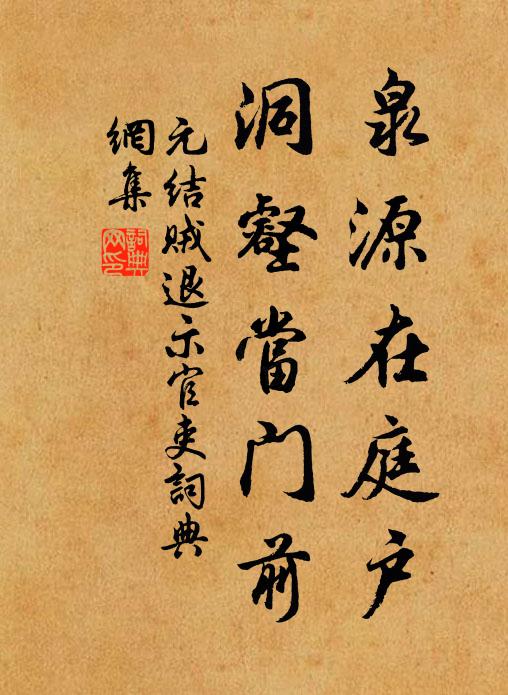 泉源在庭户
洞壑當门前
元结賊退示官吏詞典
網集
詞典網印